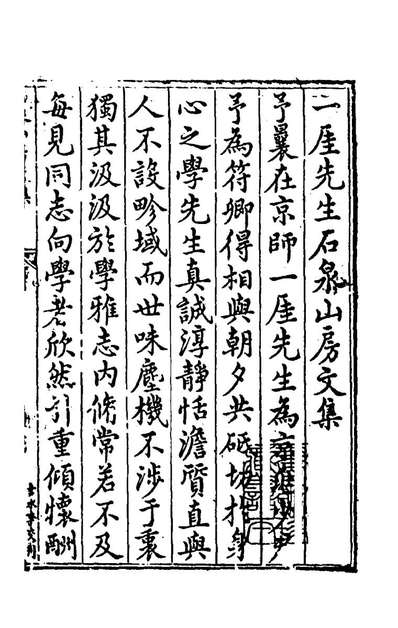 一厓先生石泉山房文集
予曩在京師一厓先生為
予為符卿得相與朝夕共砥切於身
心之學先生真誠淳靜恬澹質直與
人不設畛域而世味塵機不涉于裏
獨其汲汲於學雅志內脩常若不及
每見同志向學者欣然引重傾懷酬